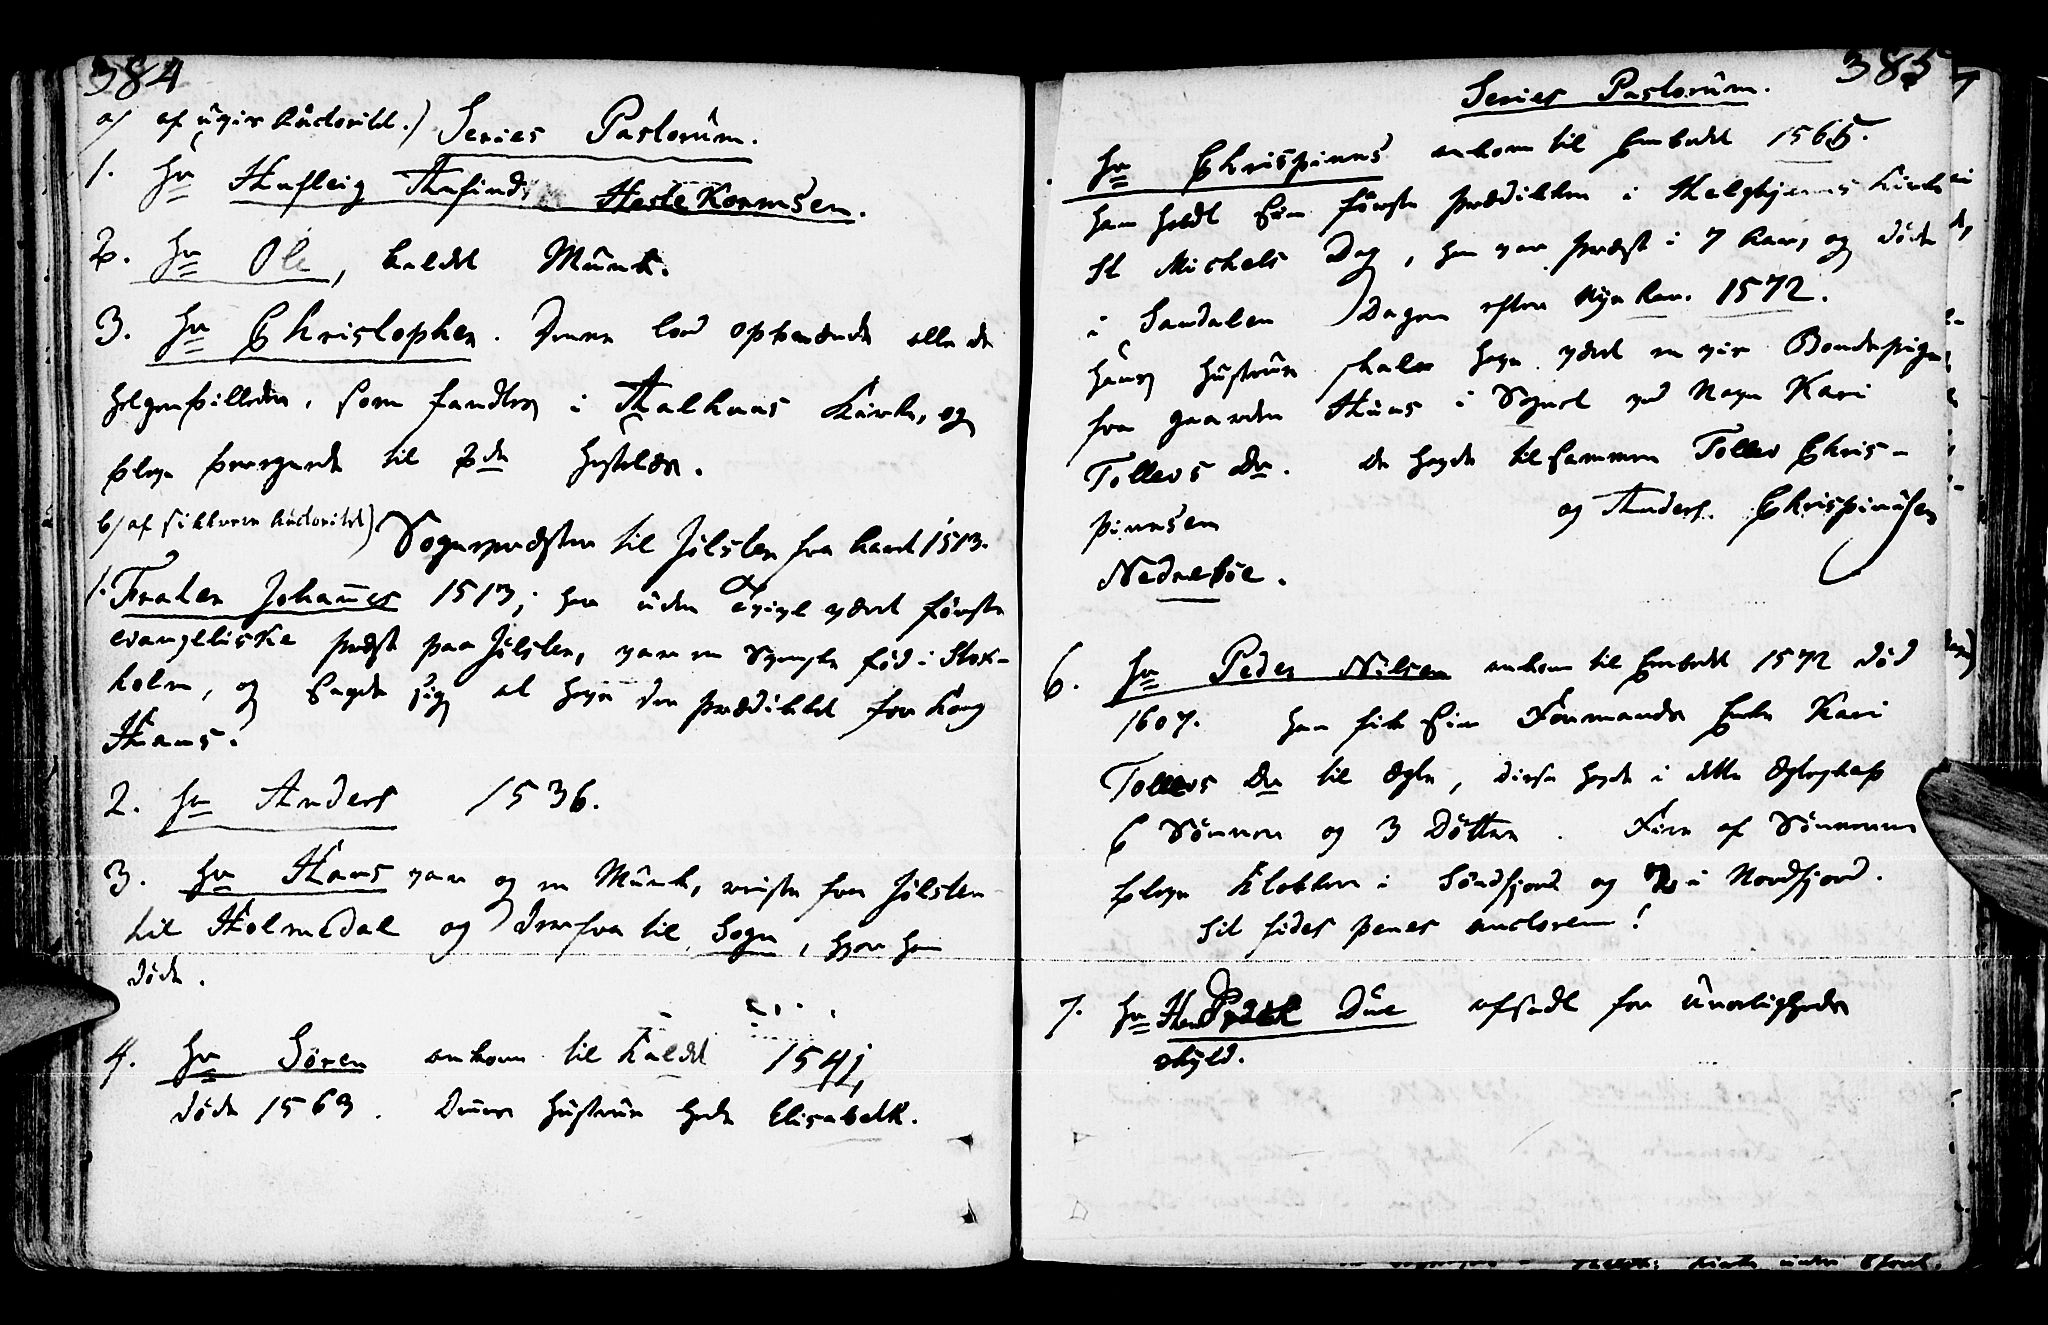 384
a) af uvis Auctoritet.) Series Pastorum.
1. Hr Asleig Asfinds Heste Kormsen.
2. Hr Ole, kaldet Munk.
3. Hr Christopher. Denne lod opbrænde alle de
Helgenbilleder, som fandtes i Aalhuus Kirke, og
blev forvandt til Hestelæn.
b) af sikkrere Auctoritet) Sognepræster til Jølster fra Aaret 1513.
1. Frater Johannes 1513; har uden Tvivl været første
evangeliske Præst paa Jølster, var en Svensker fød i Stok-
holm, og sagde sig at have der prædikket for Kong
Hans.
2. Hr Anders 1536.
3. Hr Hans var og en Munk, reiste fra Jølster
til Holmedal og derfra til Sogn, hvor han
døde.
4. Hr Søren ankom til Kaldet 1541,
døde 1563. Dennes Hustrue hede Elisabeth.
385
Series Pastorum.
Hr Chrispinus ankom til Embedet 1565.
han holdt sin første Prædikken i Helgheims Kirke
St Michels Dag, han var Præst i 7 Aar, og døde
i Sandalen Dagen efter Nye Aar. 1572.
Hans Hustrue skal have været en vis Bondepige
fra gaarden Huus i Sognet ved Navn Kari
Tollevs Dr. De havde tilsammen Tollev Chris-
pinusen og Anders Chrispinusen
Nedrebøe.
6. Hr Peder Nilsen ankom til Embedet 1572 død
1607. Han fik sin Formands Enke Kari
Tollevs Dr til ægte, disse havde i dette Ægteskab
6 Sønner og 3 Døttre. Fire af Sønnerne
bleve Klokkere i Søndfjord og i Nordfjord.
Sit fides penes auctorem!
7. Hr Due afsadt for Uvorlighede
skyld.